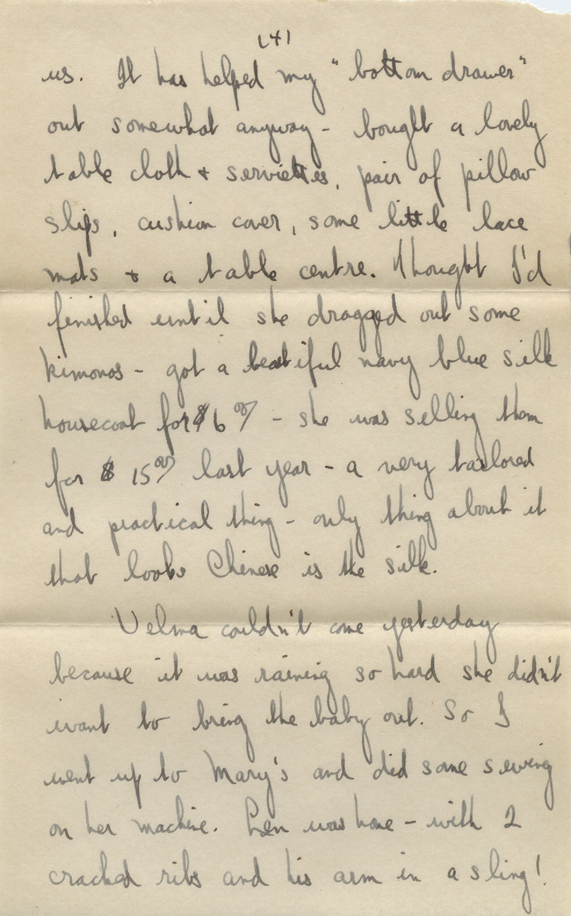 (4)
us. It has helped my "bottom drawer"
out somewhat anyway - bought a lovely
table cloth & serviettes, pair of pillow
slips, cushion cover, some little lace
mats & a table centre. Thought I'd
finished until she dragged out some
kimonos - got a beautiful navy blue silk
housecoat for $6.00 - she was selling them
for $15.00 last year - a very tailored
and practical thing - only thing about it
that looks Chinese is the silk.
Velma couldn't come yesterday
because it was raining so hard she didn't
want to bring the baby out. So I
went up to Mary's and did some sewing
on her machine. Len was home - with 2
cracked ribs and his arm in a sling!